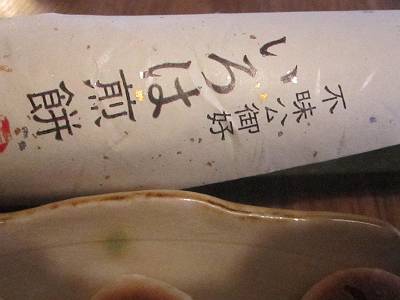 不味公御好
いろは煎餅